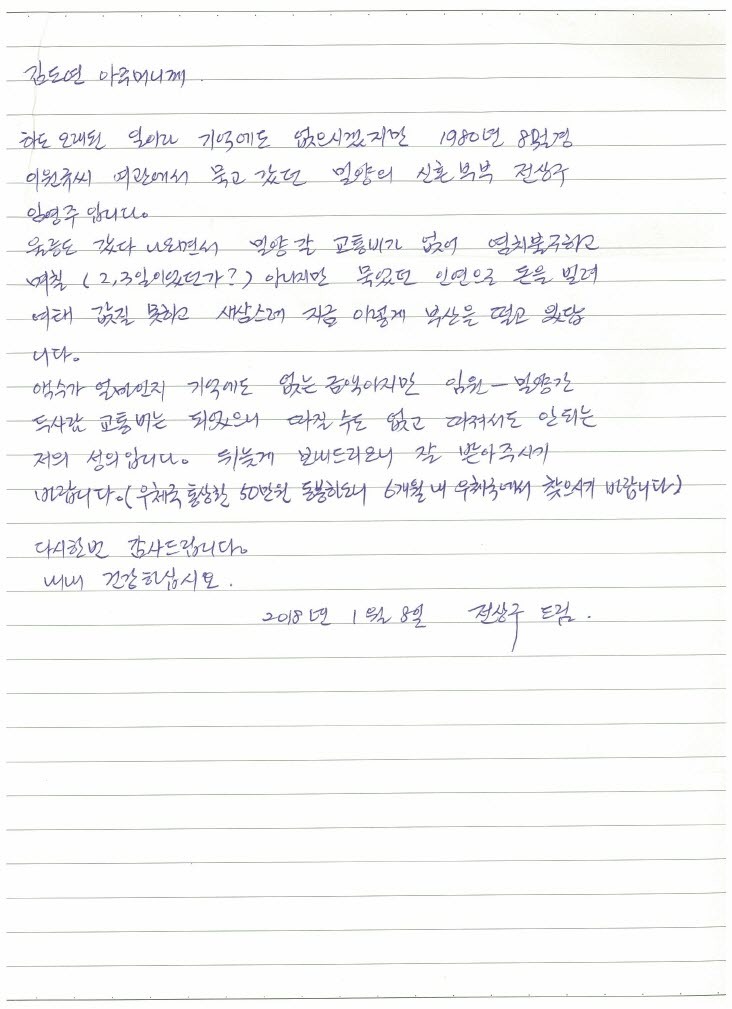 김도연 아주머니께.
하도 오래된 일이라 기억에도 없으시겠지만 1980년 8월경
이원규씨 여관에서 묵고 갔던 밀양의 신혼부부 전상구
임영주입니다.
울릉도 갔다 나오면서 밀양 갈 교통비가 없어 염치불구하고
며칠 (2,3일이었던가?) 아니지만 묵었던 인연으로 돈을 빌려
여태 갚질 못하고 새삼스레 지금 이렇게 부산을 떨고 있답
니다.
액수가 얼마인지 기억에도 없는 금액이지만 임원-밀양간
두사람 교통비는 되었으니 따질 수도 없고 따져서도 안되는
저의 성의입니다. 뒤늦게 보내드리오니 잘 받아주시기
바랍니다.(우체국 통상환 50만원 동봉하오니 6개월내 우체국에서 찾으시기 바랍니다)
다시한번 감사드립니다.
내내 건강하십시오.
2018년 1월 8일 전상구 드림.